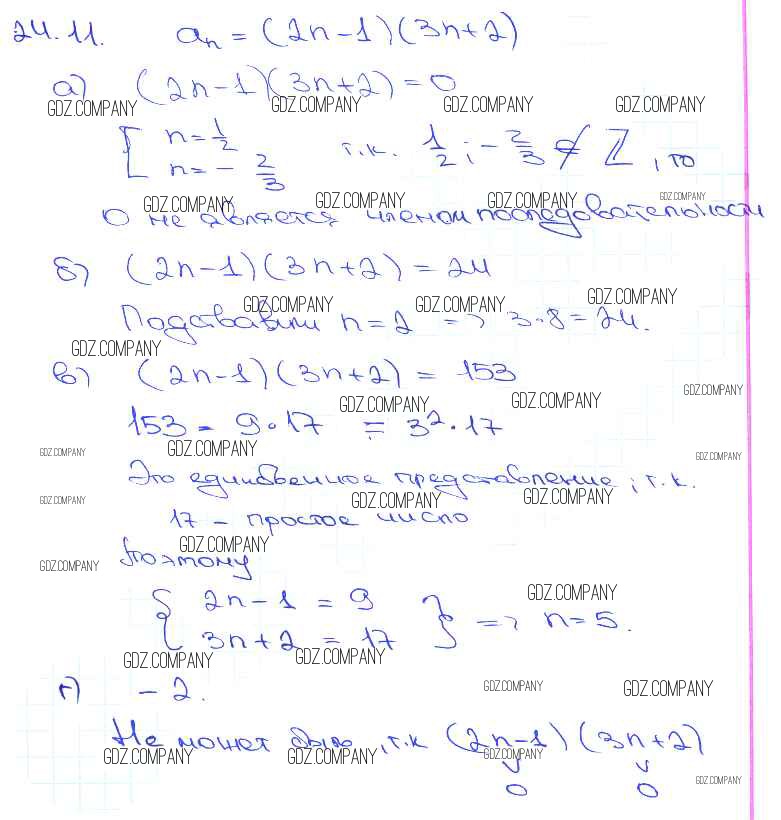 24.11. aₙ = (2n-1)(3n+2)
а) (2n-1)(3n+2) = 0
GDZ.COMPANY GDZ.COMPANY GDZ.COMPANY GDZ.COMPANY
[ n = 1/2
n = - 2/3 т.к. 1/2 ; - 2/3 ∉ Z, то
GDZ.COMPANY GDZ.COMPANY GDZ.COMPANY GDZ.COMPANY
0 не является членом последовательности
б) (2n-1)(3n+2) = 24
GDZ.COMPANY GDZ.COMPANY GDZ.COMPANY
Подставим n = 2 => 3·8 = 24.
GDZ.COMPANY
в) (2n-1)(3n+2) = 153
GDZ.COMPANY
GDZ.COMPANY GDZ.COMPANY
153 = 9·17 = 3²·17
GDZ.COMPANY GDZ.COMPANY GDZ.COMPANY
Это единственное представление, т.к.
GDZ.COMPANY GDZ.COMPANY GDZ.COMPANY
17 - простое число
GDZ.COMPANY
GDZ.COMPANY
Поэтому
GDZ.COMPANY
{ 2n-1 = 9
3n+2 = 17 } => n = 5.
GDZ.COMPANY GDZ.COMPANY
г) -2.
GDZ.COMPANY GDZ.COMPANY
Не может быть, т.к (2n-1) (3n+2)
GDZ.COMPANY GDZ.COMPANY GDZ.COMPANY
∨ ∨
0 0
GDZ.COMPANY